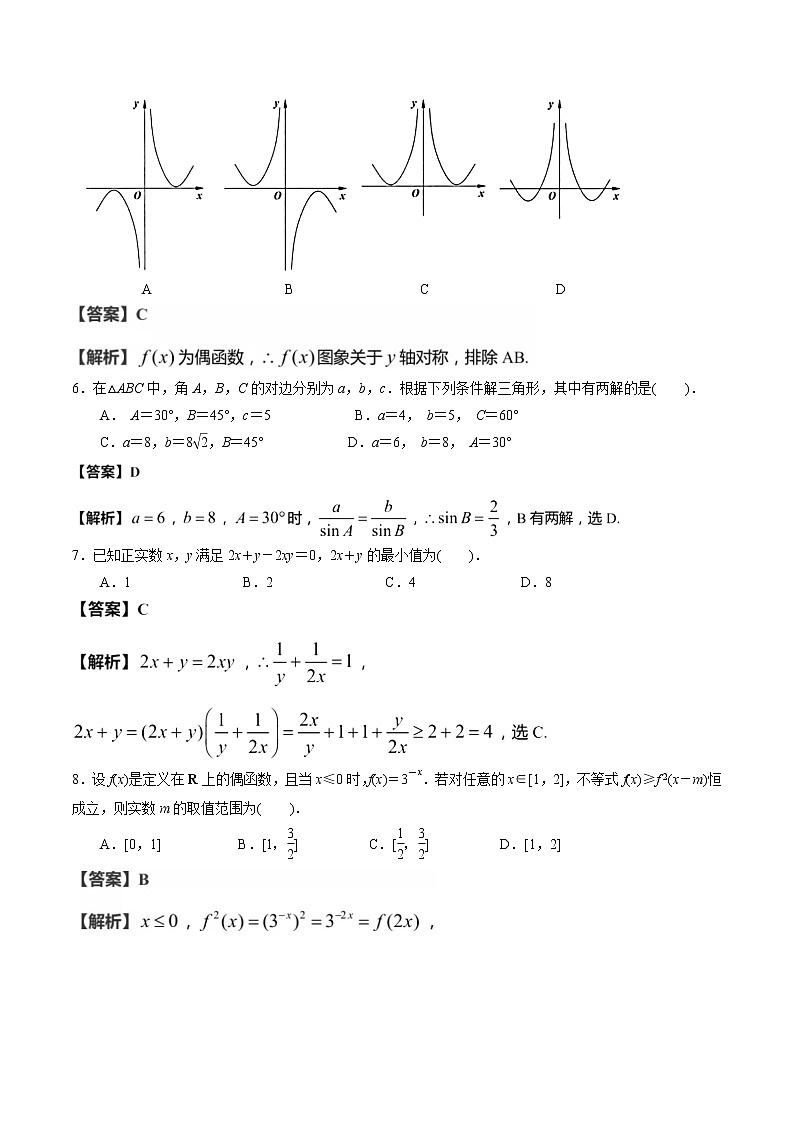 y y y y
O x O x O x O x
A B C D
【答案】C
【解析】f(x)为偶函数，∴f(x)图象关于y轴对称，排除AB.
6．在△ABC中，角A，B，C的对边分别为a，b，c．根据下列条件解三角形，其中有两解的是(　　)．
A． A＝30°，B＝45°，c＝5 B．a＝4， b＝5， C＝60°
C．a＝8，b＝8√2，B＝45° D．a＝6， b＝8， A＝30°
【答案】D
【解析】a＝6，b＝8，A＝30°时，a/sin A＝b/sin B，∴sin B＝2/3，B有两解，选D.
7．已知正实数x，y满足2x＋y－2xy＝0，2x＋y的最小值为(　　)．
A．1 B．2 C．4 D．8
【答案】C
【解析】2x＋y＝2xy，∴1/y＋1/2x＝1，
2x＋y＝(2x＋y)(1/y＋1/2x)＝2x/y＋1＋1＋y/2x≥2＋2＝4，选C.
8．设f(x)是定义在R上的偶函数，且当x≤0时,f(x)＝3⁻ˣ．若对任意的x∈[1，2]，不等式f(x)≥f²(x－m)恒
成立，则实数m的取值范围为(　　)．
A．[0，1] B．[1，3/2] C．[1/2，3/2] D．[1，2]
【答案】B
【解析】x≤0，f²(x)＝(3⁻ˣ)²＝3⁻²ˣ＝f(2x)，